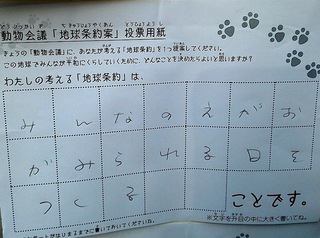 動物会議「地球条約案」投票用紙
きょうの「動物会議」に、あなたが考える「地球条約」を1つ提案してください。
この地球でみんなが平和にくらしていくために、どんなことを決めたらよいと思いますか?
わたしの考える「地球条約」は、
みんなのえがお
がみられる日を
つくる
ことです。
※文字を升目の中に大きく書いてね。